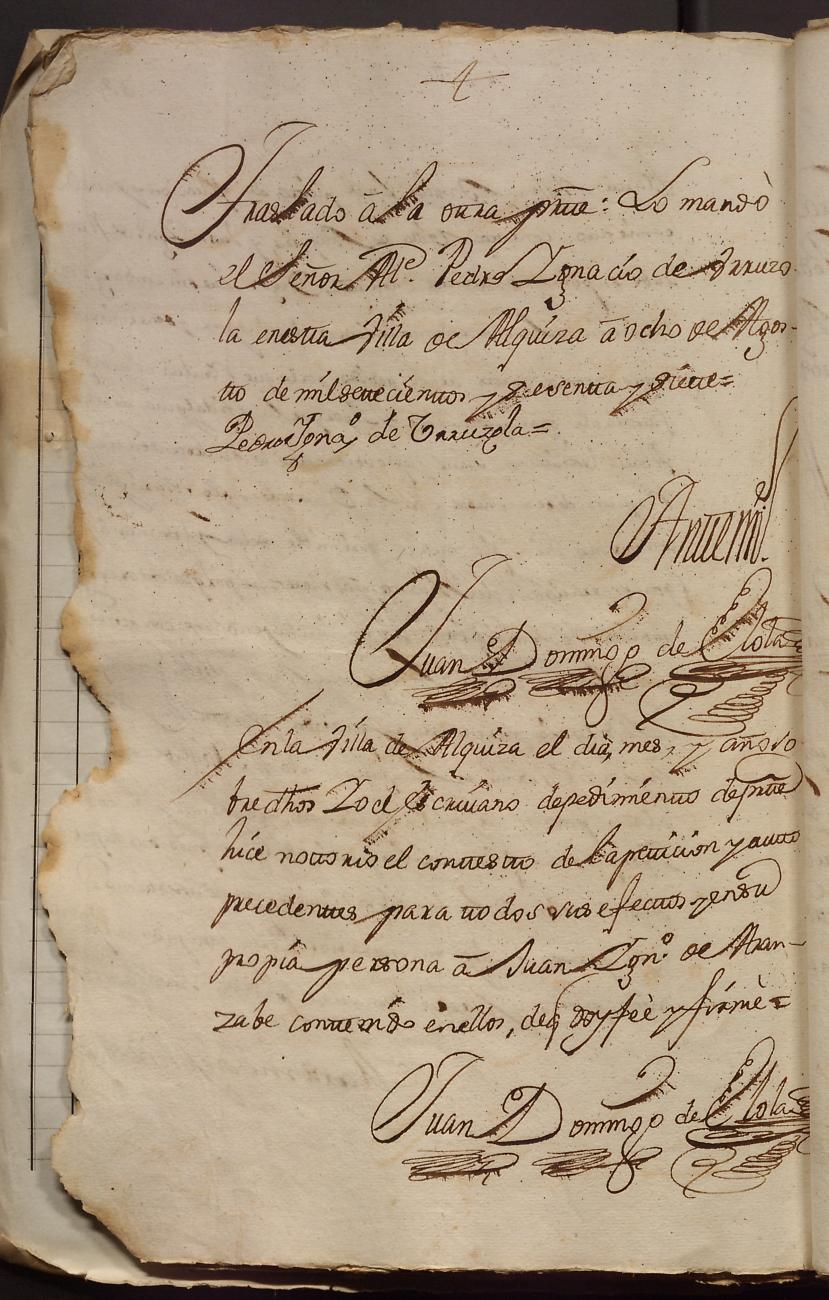 4
Traslado à la otra pte: Lo mandò
el Señor Alc. Pedro Ignacio de Yrruzo
la enesta Villa de Alquiza à ocho de Agos-
to de mil setecientos y sesenta y siete=
Pedro Igna.º de Yrruzola=
Antemi.
Juan Domingo de Elola
En la Villa de Alquiza el dia, mes, y año so
bre dhos Yo el Escrivano de pedimiento de pte
hice notorio el contesto de la peticion y auto
precedentes para todos sus efectos y en su
propia persona à Juan Ign.º de Aran-
zabe contenido en ellos, de q doy feè y firmè=
Juan Domingo de Elola